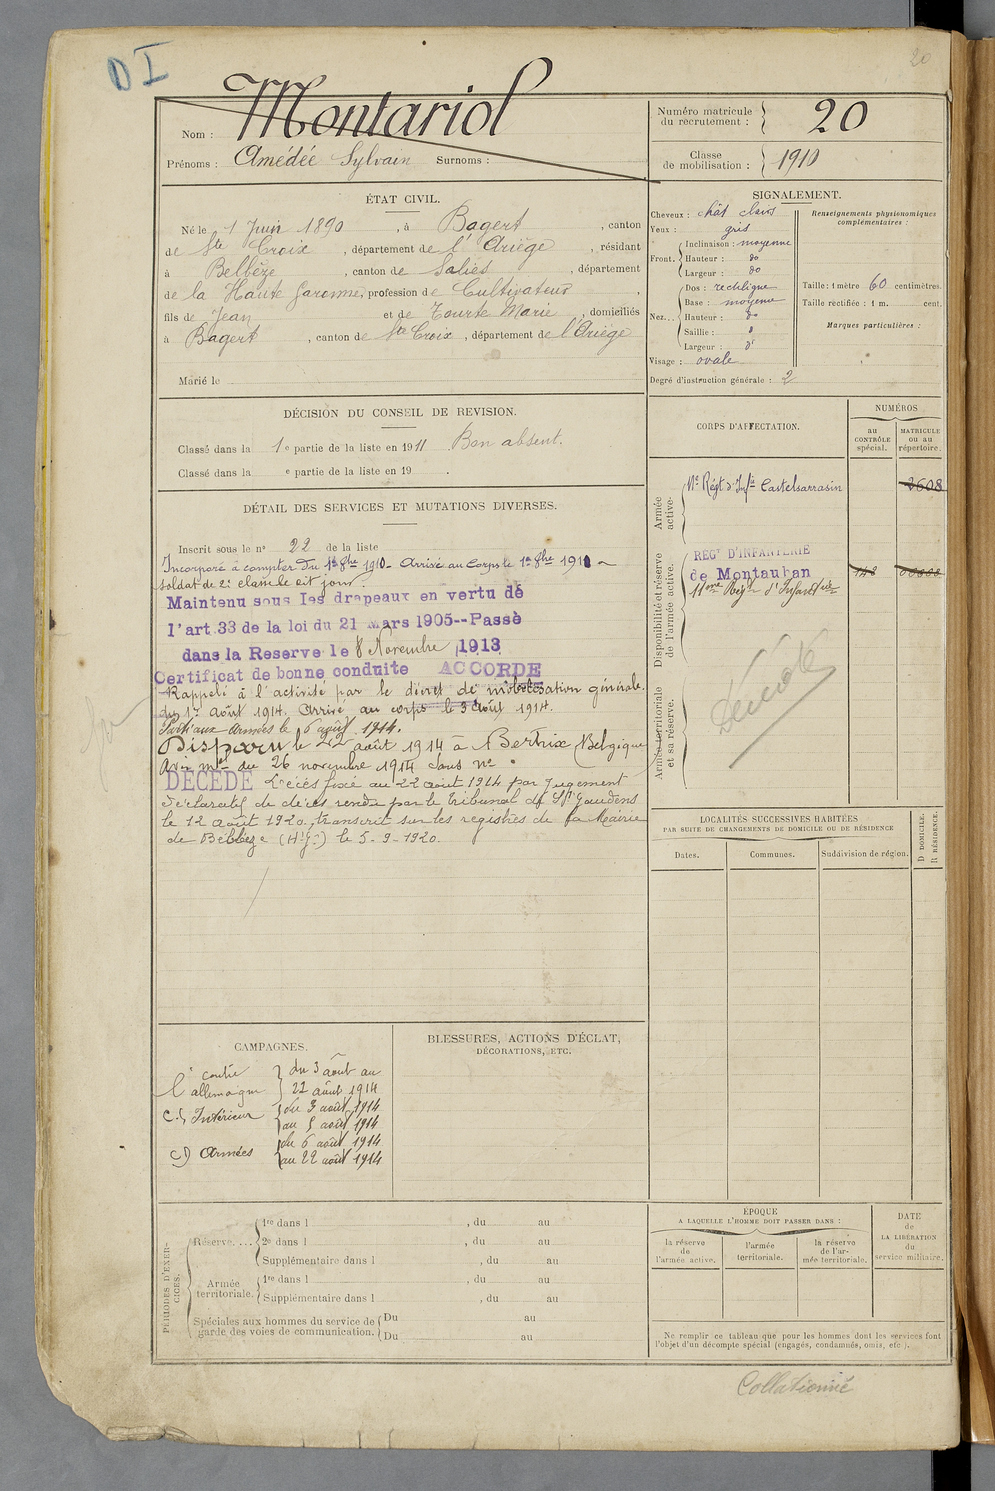 D I
20
Nom : Montariol
Prénoms : Amédée Sylvain Surnoms :
Numéro matricule du recrutement : 20
Classe de mobilisation : 1910
ÉTAT CIVIL.
Né le 1 Juin 1890, à Bagert, canton
de Ste Croix, département de l'Ariège, résidant
à Belbèze, canton de Salies, département
de la Haute Garonne, profession de Cultivateur.
fils de Jean et de Tourte Marie, domiciliés
à Bagert, canton de Ste Croix, département de l'Ariège
Marié le
SIGNALEMENT.
Cheveux : chât clairs
Yeux : gris
Front. Inclinaison : moyenne
Hauteur : do
Largeur : do
Nez... Dos : rectiligne
Base : moyenne
Hauteur : do
Saillie : d
Largeur : d°
Visage : ovale
Renseignements physionomiques complémentaires :
Taille : 1 mètre 60 centimètres.
Taille rectifiée : 1 m. cent.
Marques particulières :
Degré d'instruction générale : 2
DÉCISION DU CONSEIL DE REVISION.
Classé dans la 1e partie de la liste en 1911 Bon absent.
Classé dans la e partie de la liste en 19 .
DÉTAIL DES SERVICES ET MUTATIONS DIVERSES.
Inscrit sous le n° 22 de la liste
Incorporé à compter du 1er 8bre 1910. Arrivé au Corps le 1er 8bre 1910
soldat de 2e classe le dit jour.
Maintenu sous les drapeaux en vertu de
l'art. 33 de la loi du 21 Mars 1905--Passé
dans la Reserve le 8 Novembre 1913
Certificat de bonne conduite ACCORDÉ
Rappelé à l'activité par le décret de mobilisation générale
du 1er Août 1914. Arrivé au corps le 3 août 1914.
Parti aux armées le 6 août 1914.
Disparu le 22 août 1914 à Bertrix (Belgique)
Avis mel du 26 novembre 1914 sans no.
DÉCÉDÉ Décès fixé au 22 août 1914 par Jugement
déclaratif de décès rendu par le tribunal de St Gaudens
le 12 août 1920, transcrit sur les registres de la Mairie
de Belbèze (H.G.) le 5-9-1920.
CORPS D'AFFECTATION.
NUMÉROS
au CONTRÔLE spécial.
MATRICULE ou au répertoire.
Armée active.
11e Régt d'Infie Castelsarrasin 2608
Disponibilité et réserve de l'armée active.
REGt D'INFANTERIE
de Montauban
11ème Régt d'Infanterie
Armée territoriale et sa réserve.
Décédé
LOCALITÉS SUCCESSIVES HABITÉES
PAR SUITE DE CHANGEMENTS DE DOMICILE OU DE RÉSIDENCE
Dates.
Communes.
Subdivision de région.
D DOMICILE.
R RÉSIDENCE.
CAMPAGNES.
contre l'allemagne du 3 août au
22 août 1914
C. S Intérieur du 3 août 1914
au 5 août 1914
C. D Armées du 6 août 1914
au 22 août 1914
BLESSURES, ACTIONS D'ÉCLAT,
DÉCORATIONS, ETC.
PÉRIODES D'EXERCICES.
Réserve.... 1re dans l , du au
2e dans l , du au
Supplémentaire dans l , du au
Armée territoriale. 1re dans l , du au
Supplémentaire dans l , du au
Spéciales aux hommes du service de garde des voies de communication. Du au
Du au
ÉPOQUE
A LAQUELLE L'HOMME DOIT PASSER DANS :
la réserve de l'armée active.
l'armée territoriale.
la réserve de l'armée territoriale.
DATE de LA LIBÉRATION du service militaire.
Ne remplir ce tableau que pour les hommes dont les services font
l'objet d'un décompte spécial (engagés, condamnés, omis, etc.).
Collationné